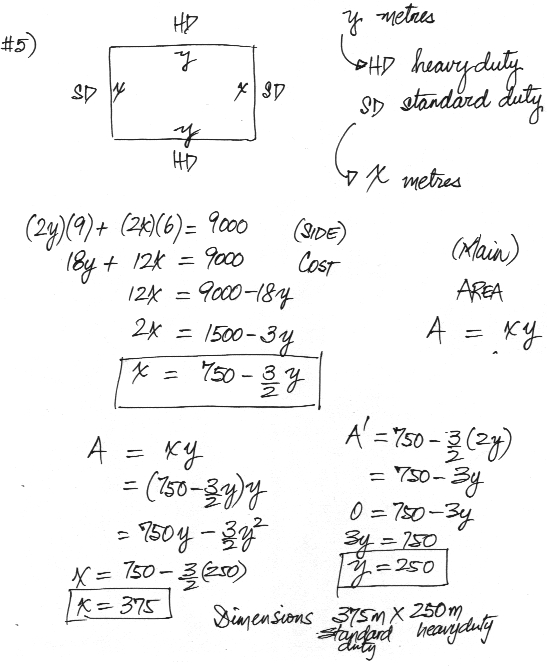 #5)
HD
y
SD x x SD
y
HD
y metres
HD heavy duty
SD standard duty
x metres
(2y)(9) + (2x)(6) = 9000 (SIDE)
18y + 12x = 9000 COST
12x = 9000 - 18y
2x = 1500 - 3y
x = 750 - 3/2 y
(Main)
AREA
A = xy
A = xy
= (750 - 3/2 y)y
= 750y - 3/2 y²
x = 750 - 3/2 (250)
x = 375
A' = 750 - 3/2 (2y)
= 750 - 3y
0 = 750 - 3y
3y = 750
y = 250
Dimensions 375m X 250m
standard duty heavy duty